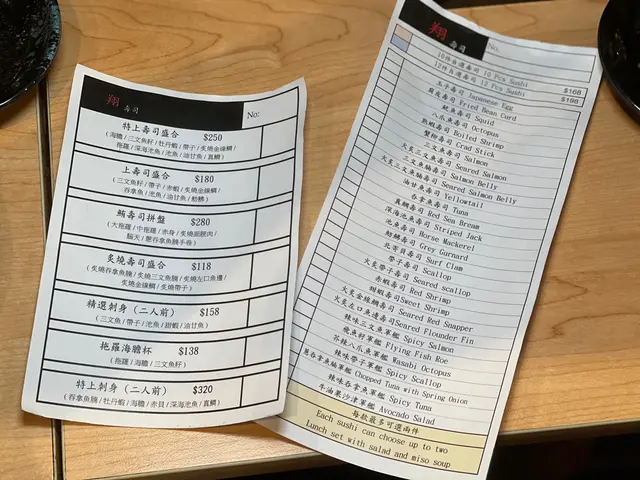 翔 壽司
No:
特上壽司盛合 $250
(海膽/三文魚籽/牡丹蝦/帶子/炙燒金線鯛/
拖羅/深海池魚/池魚/油甘魚/真鯛)
上壽司盛合 $180
(三文魚籽/帶子/赤蝦/炙燒金線鯛/
吞拿魚/池魚/油甘魚/魷鰊)
鮪壽司拼盤 $280
(大拖羅/中拖羅/赤身/炙燒面頰肉/
腦天/蔥吞拿魚腩手卷)
炙燒壽司盛合 $118
(炙燒吞拿魚腩/炙燒三文魚腩/炙燒左口魚邊/
炙燒金線鯛/炙燒帶子)
精選刺身(二人前) $158
(三文魚/帶子/池魚/甜蝦/油甘魚)
拖羅海膽杯 $138
(拖羅/海膽/三文魚籽)
特上刺身(二人前) $320
(吞拿魚腩/牡丹蝦/海膽/赤貝/深海池魚/真鯛)
翔 壽司
No.
10件自選壽司 10 Pcs Sushi $168
12件自選壽司 12 Pcs Sushi $198
玉子壽司 Japanese Egg
腐皮壽司 Fried Bean Curd
魷魚壽司 Squid
八爪魚壽司 Octopus
熟蝦壽司 Boiled Shrimp
蟹柳壽司 Crad Stick
三文魚壽司 Salmon
火炙三文魚壽司 Seared Salmon
三文魚腩壽司 Salmon Belly
火炙三文魚腩壽司 Seared Salmon Belly
油甘魚壽司 Yellowtail
吞拿魚壽司 Tuna
真鯛壽司 Red Sea Bream
深海池魚壽司 Striped Jack
池魚壽司 Horse Mackerel
魴鮄壽司 Grey Gurnard
北寄貝壽司 Surf Clam
帶子壽司 Scallop
火炙帶子壽司 Seared scallop
赤蝦壽司 Red Shrimp
甜蝦壽司 Sweet Shrimp
火炙金線鯛壽司 Seared Red Snapper
火炙左口魚邊壽司 Seared Flounder Fin
辣味三文魚軍艦 Spicy Salmon
飛魚籽軍艦 Flying Fish Roe
芥辣八爪魚軍艦 Wasabi Octopus
辣味帶子軍艦 Spicy Scallop
蔥吞拿魚軍艦 Chopped Tuna with Spring Onion
辣味吞拿魚軍艦 Spicy Tuna
牛油果沙津軍艦 Avocado Salad
每款最多可選兩件
Each sushi can choose up to two
Lunch set with salad and miso soup